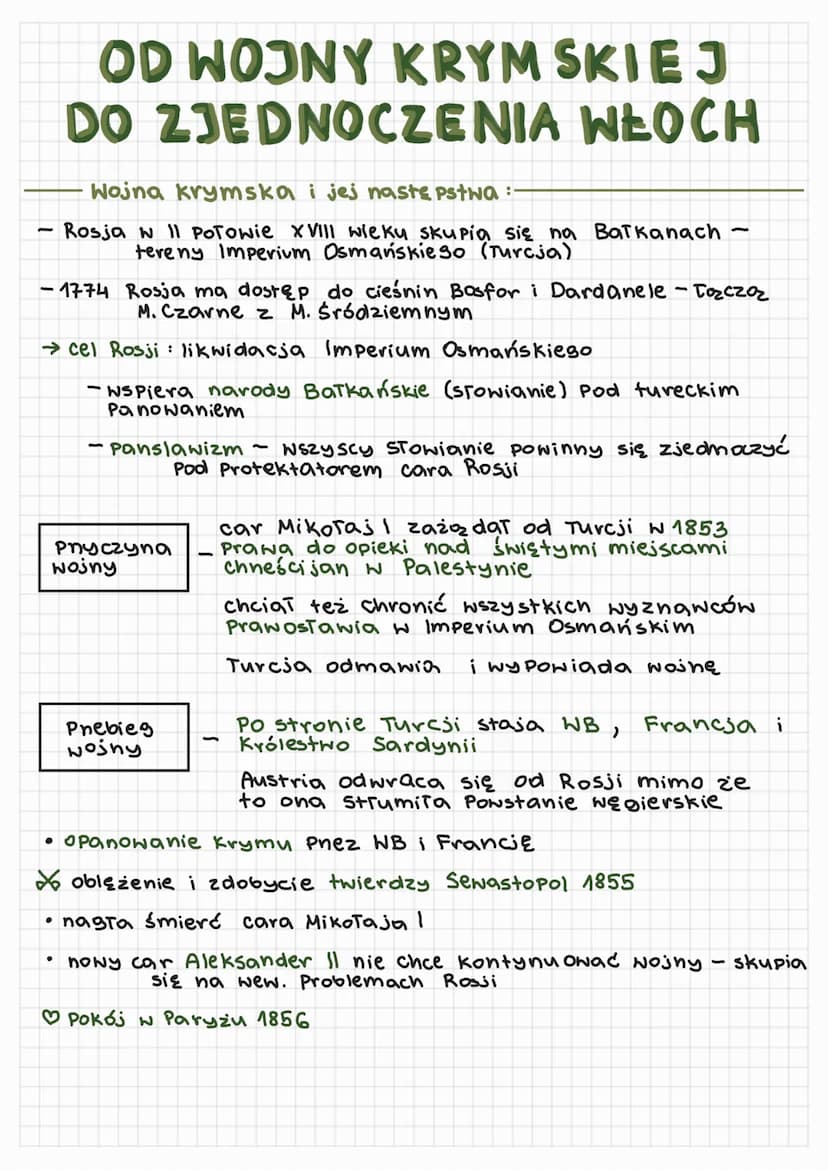 OD WOJNY KRYMSKIEJ
DO ZJEDNOCZENIA WŁOCH
Wojna krymska i jej następstwa:
- Rosja w II połowie XVIII wieku skupia się na Bałkanach -
tereny Imperium Osmańskiego (Turcja)
- 1774 Rosja ma dostęp do cieśnin Bosfor i Dardanele - łączą
M. Czarne z M. Śródziemnym
→ cel Rosji: likwidacja Imperium Osmańskiego
- wspiera narody Bałkańskie (słowianie) pod tureckim
panowaniem
- panslawizm - wszyscy słowianie powinny się zjednoczyć
pod protektatorem cara Rosji
Przyczyna
wojny
car Mikołaj I zażądał od Turcji w 1853
- prawa do opieki nad świętymi miejscami
chrześcijan w Palestynie
chciał też chronić wszystkich wyznawców
prawosławia w Imperium Osmańskim
Turcja odmawia i wypowiada wojnę
Przebieg
wojny
- Po stronie Turcji stają WB, Francja i
Królestwo Sardynii
Austria odwraca się od Rosji mimo że
to ona stłumiła powstanie węgierskie
• opanowanie Krymu przez WB i Francję
⚔ oblężenie i zdobycie twierdzy Sewastopol 1855
• nagła śmierć cara Mikołaja I
• nowy car Aleksander II nie chce kontynuować wojny - skupia
się na wew. problemach Rosji
♡ pokój w Paryżu 1856